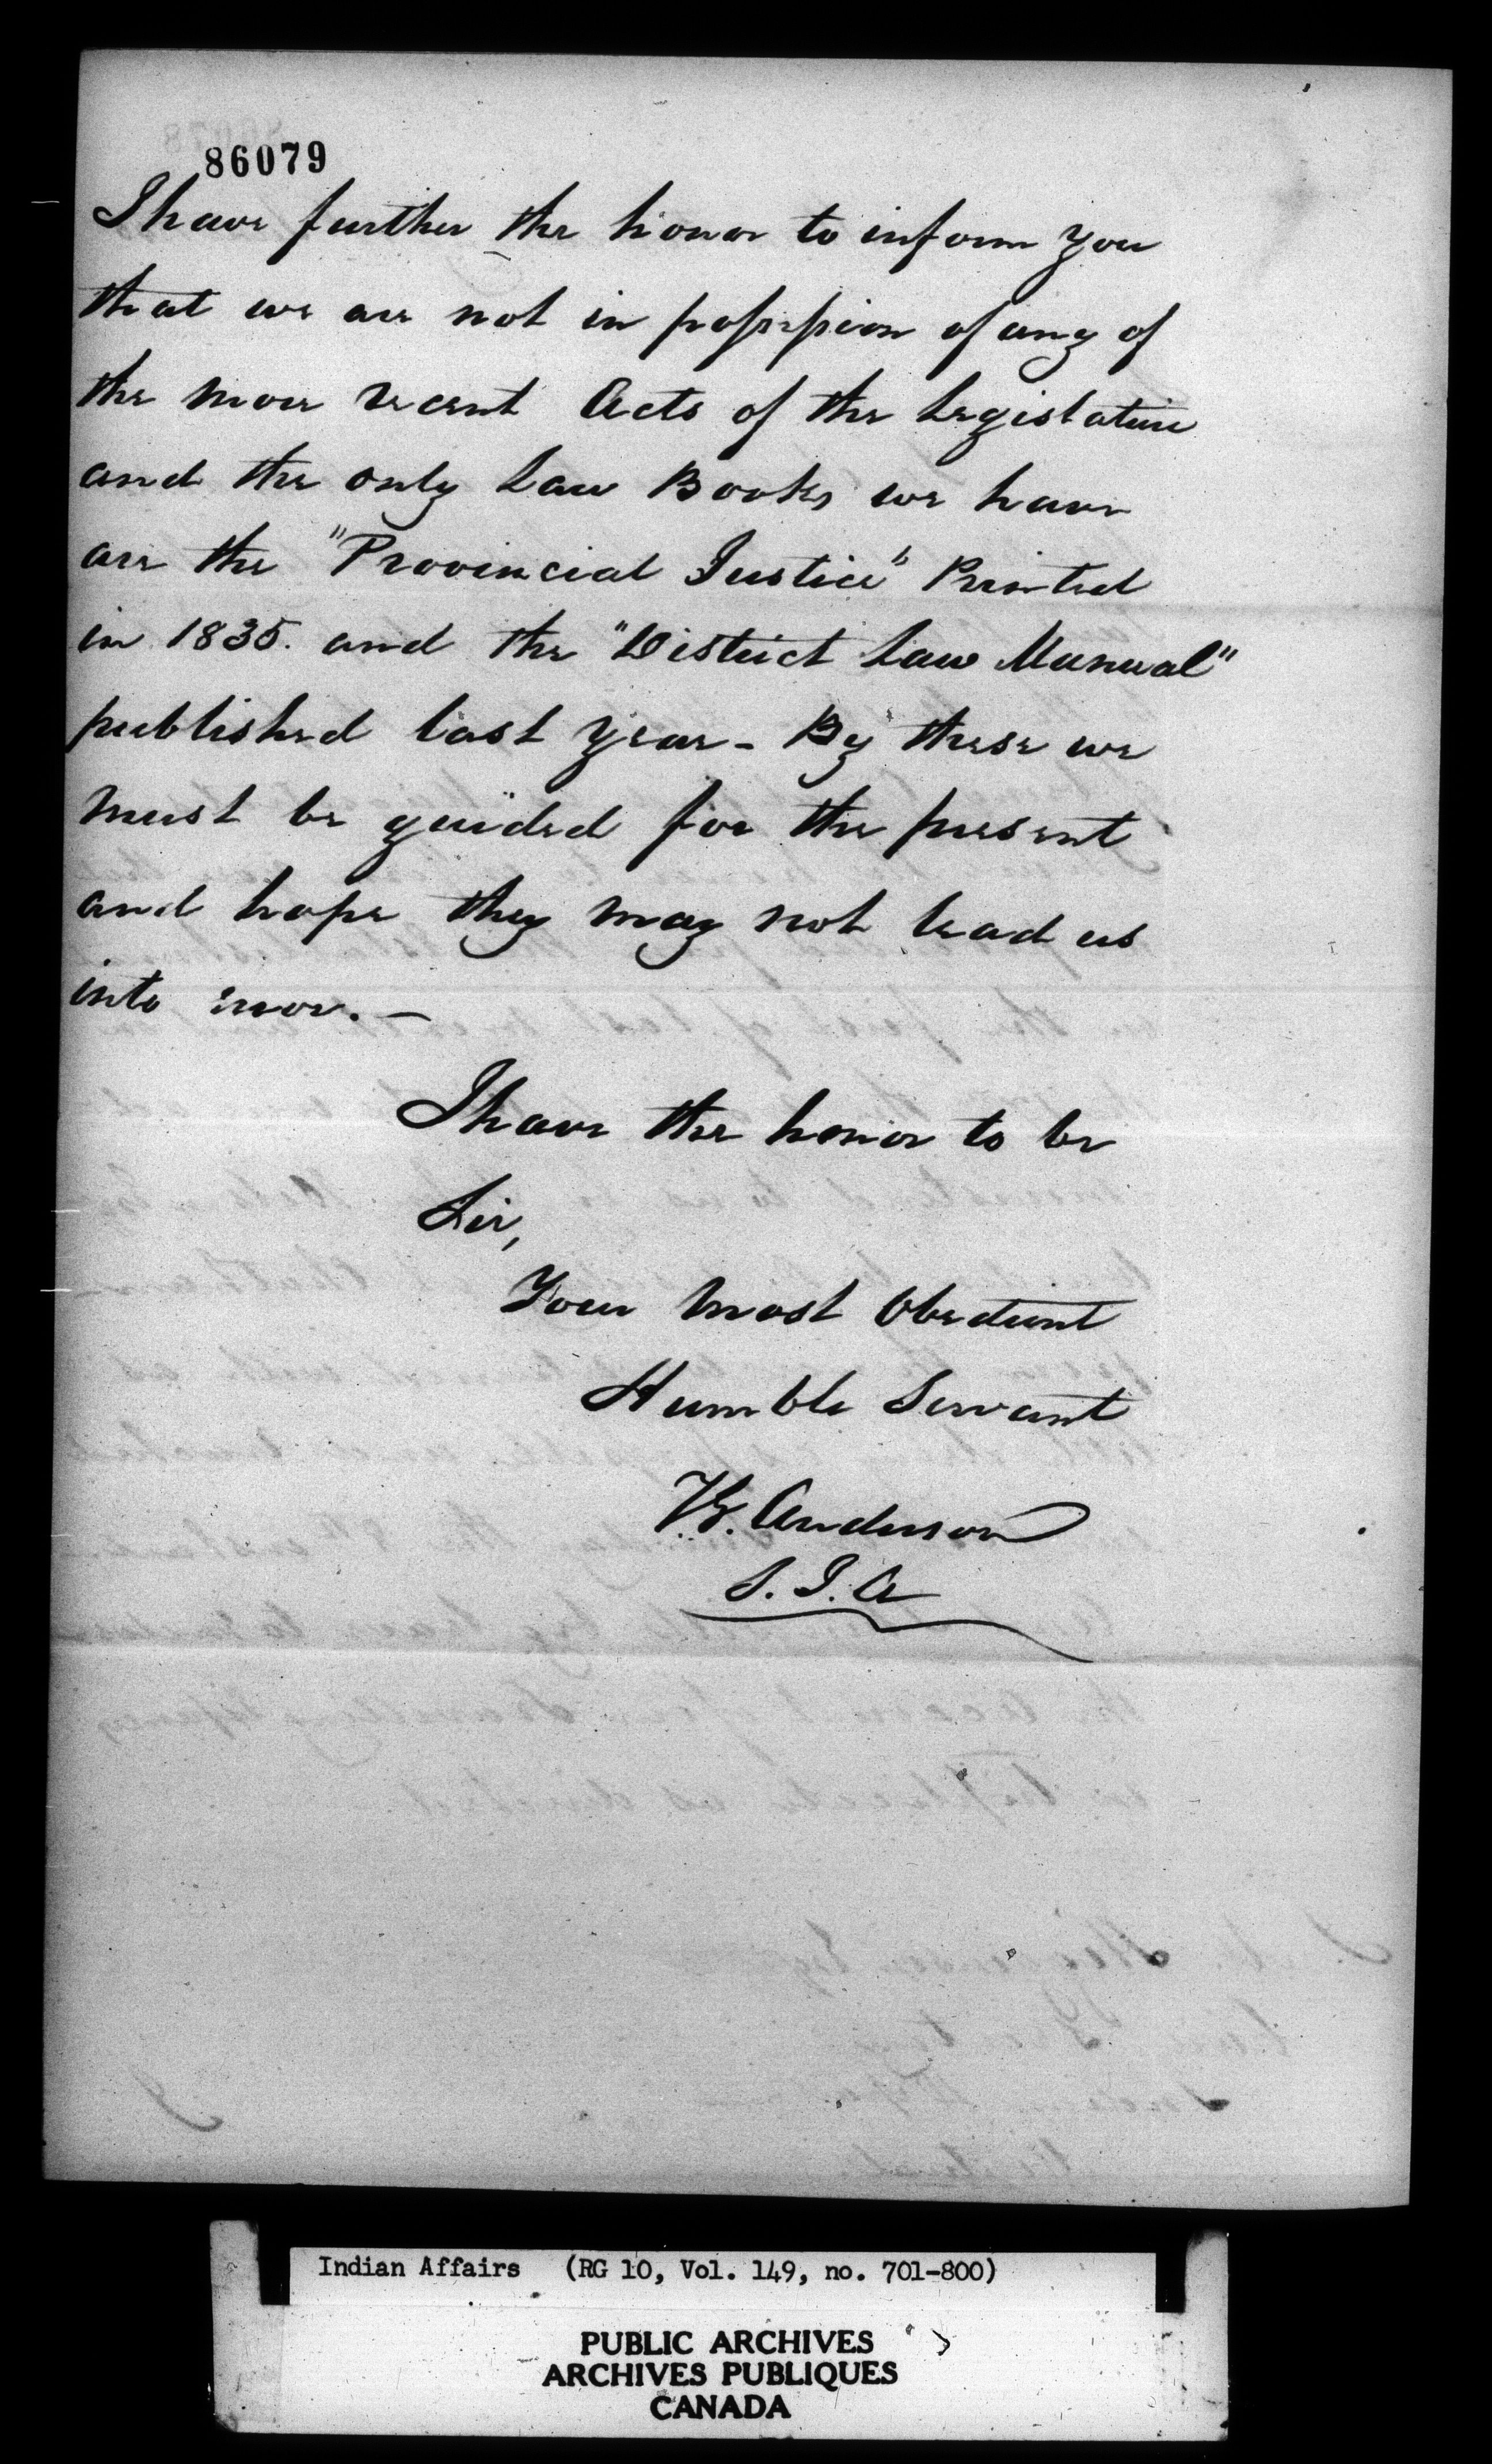 86079
I have further the honor to inform you
that we are not in possession of any of
the more recent Acts of the Legislature
and the only Law Books we have
are the "Provincial Justice" Printed
in 1835. and the "District Law Manual"
published last year - By these we
must be guided for the present
and hope they may not lead us
into error. -
I have the honor to be
Sir,
Your most Obedient
Humble Servant
Anderson
S. I. A
Indian Affairs (RG 10, Vol. 149, no. 701-800)
PUBLIC ARCHIVES
ARCHIVES PUBLIQUES
CANADA